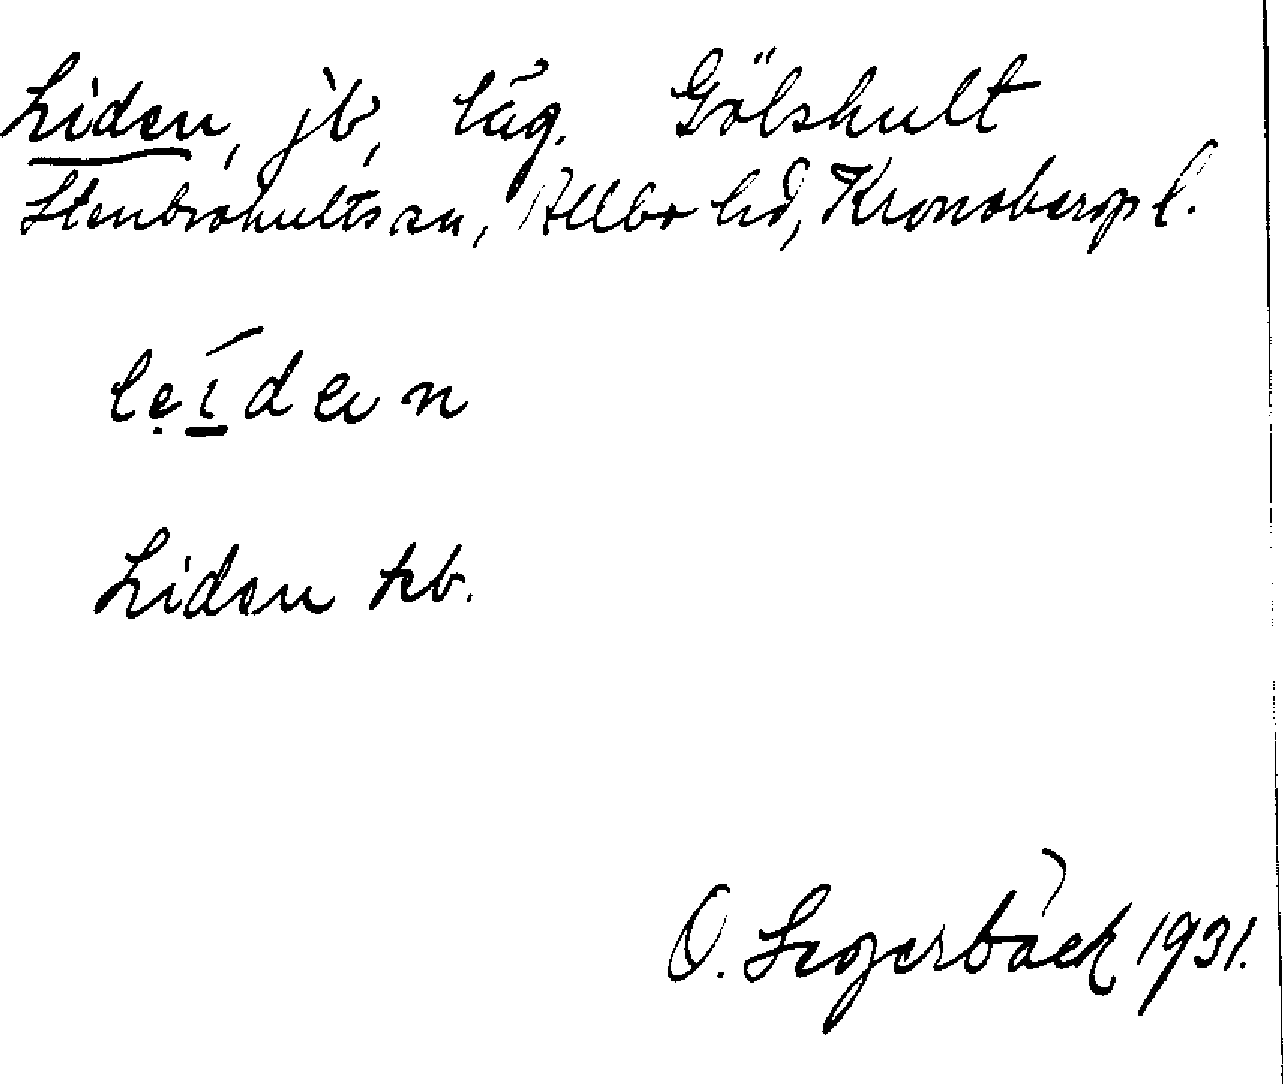 Liden, jb, läg. Gölshult
Stenbrohults sn, Allbo hd, Kronobergs l.
lẹí̱dạn
Liden kb.
O. Segerbäck 1931.